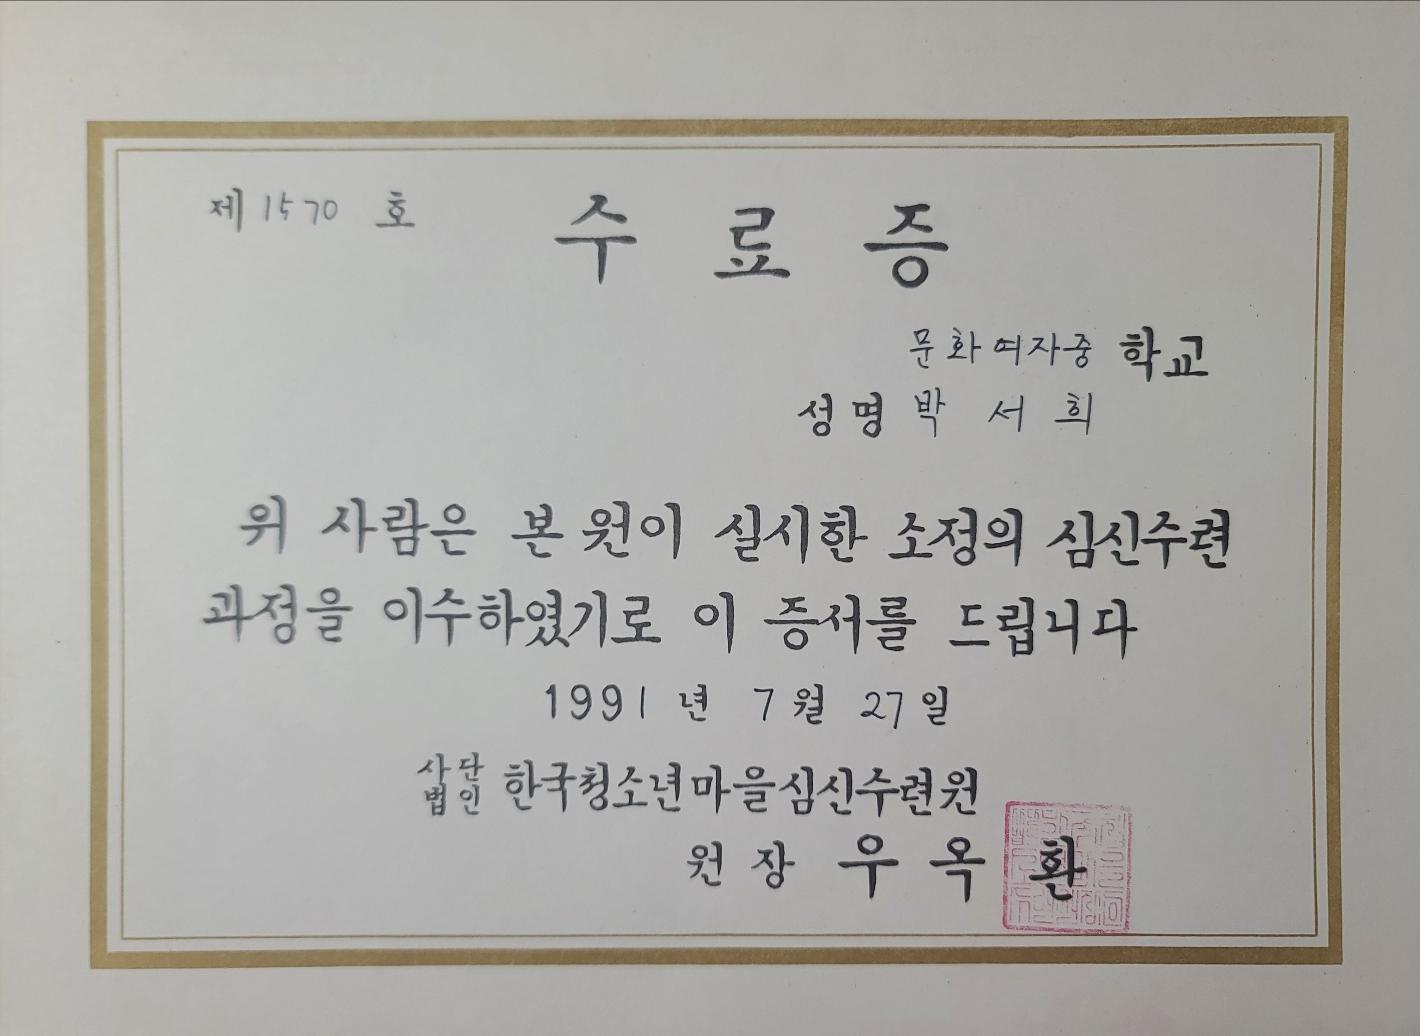 제 1570 호
수 료 증
문화여자중 학교
성명 박 서 희
위 사람은 본 원이 실시한 소정의 심신수련
과정을 이수하였기로 이 증서를 드립니다
1991 년 7 월 27 일
사단
법인 한국청소년마을심신수련원
원 장 우 옥 환